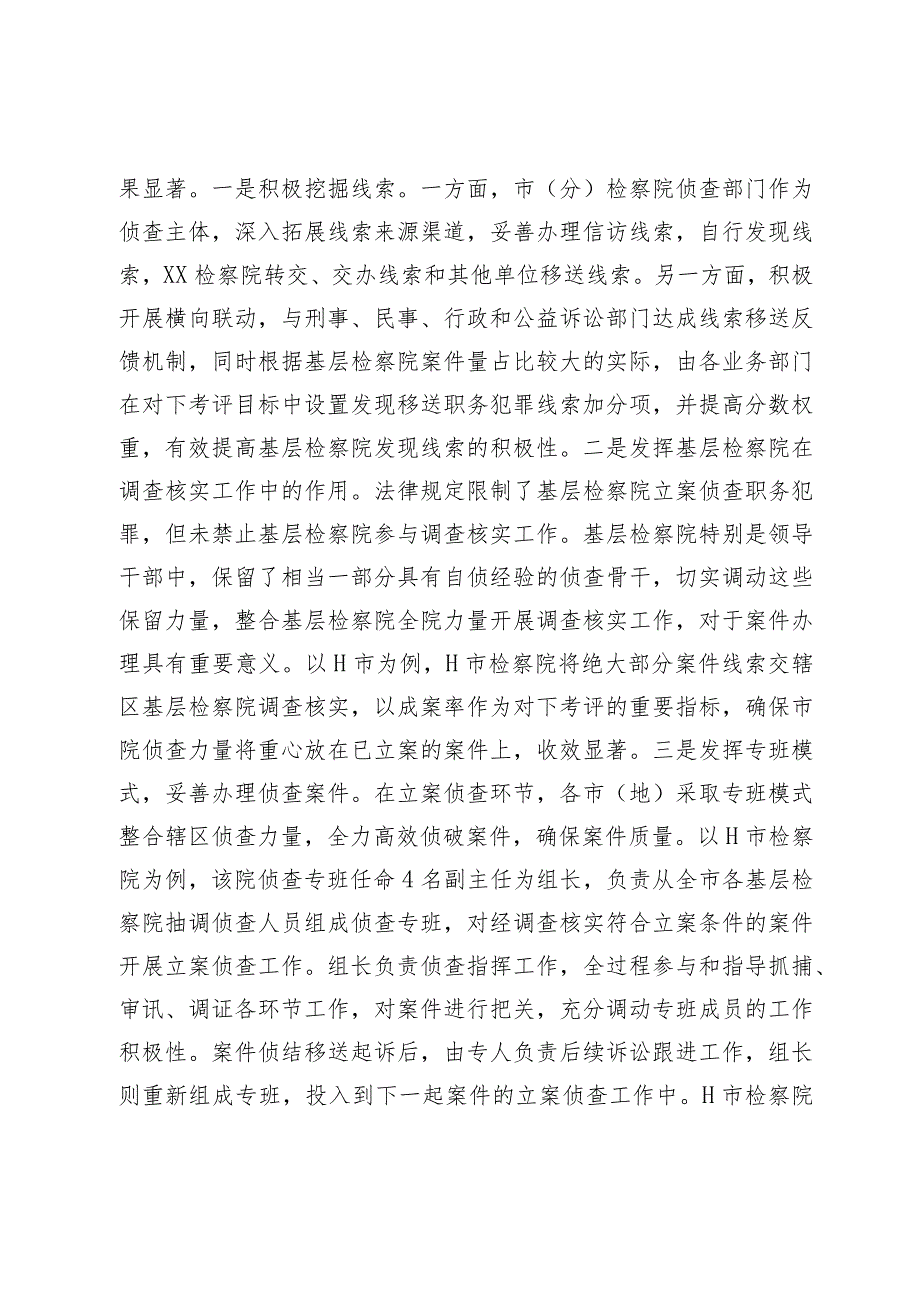 果显著。一是积极挖掘线索。一方面，市（分）检察院侦查部门作为
侦查主体，深入拓展线索来源渠道，妥善办理信访线索，自行发现线
索，XX 检察院转交、交办线索和其他单位移送线索。另一方面，积极
开展横向联动，与刑事、民事、行政和公益诉讼部门达成线索移送反
馈机制，同时根据基层检察院案件量占比较大的实际，由各业务部门
在对下考评目标中设置发现移送职务犯罪线索加分项，并提高分数权
重，有效提高基层检察院发现线索的积极性。二是发挥基层检察院在
调查核实工作中的作用。法律规定限制了基层检察院立案侦查职务犯
罪，但未禁止基层检察院参与调查核实工作。基层检察院特别是领导
干部中，保留了相当一部分具有自侦经验的侦查骨干，切实调动这些
保留力量，整合基层检察院全院力量开展调查核实工作，对于案件办
理具有重要意义。以 H 市为例，H 市检察院将绝大部分案件线索交辖
区基层检察院调查核实，以成案率作为对下考评的重要指标，确保市
院侦查力量将重心放在已立案的案件上，收效显著。三是发挥专班模
式，妥善办理侦查案件。在立案侦查环节，各市（地）采取专班模式
整合辖区侦查力量，全力高效侦破案件，确保案件质量。以 H 市检察
院为例，该院侦查专班任命 4 名副主任为组长，负责从全市各基层检
察院抽调侦查人员组成侦查专班，对经调查核实符合立案条件的案件
开展立案侦查工作。组长负责侦查指挥工作，全过程参与和指导抓捕、
审讯、调证各环节工作，对案件进行把关，充分调动专班成员的工作
积极性。案件侦结移送起诉后，由专人负责后续诉讼跟进工作，组长
则重新组成专班，投入到下一起案件的立案侦查工作中。H 市检察院